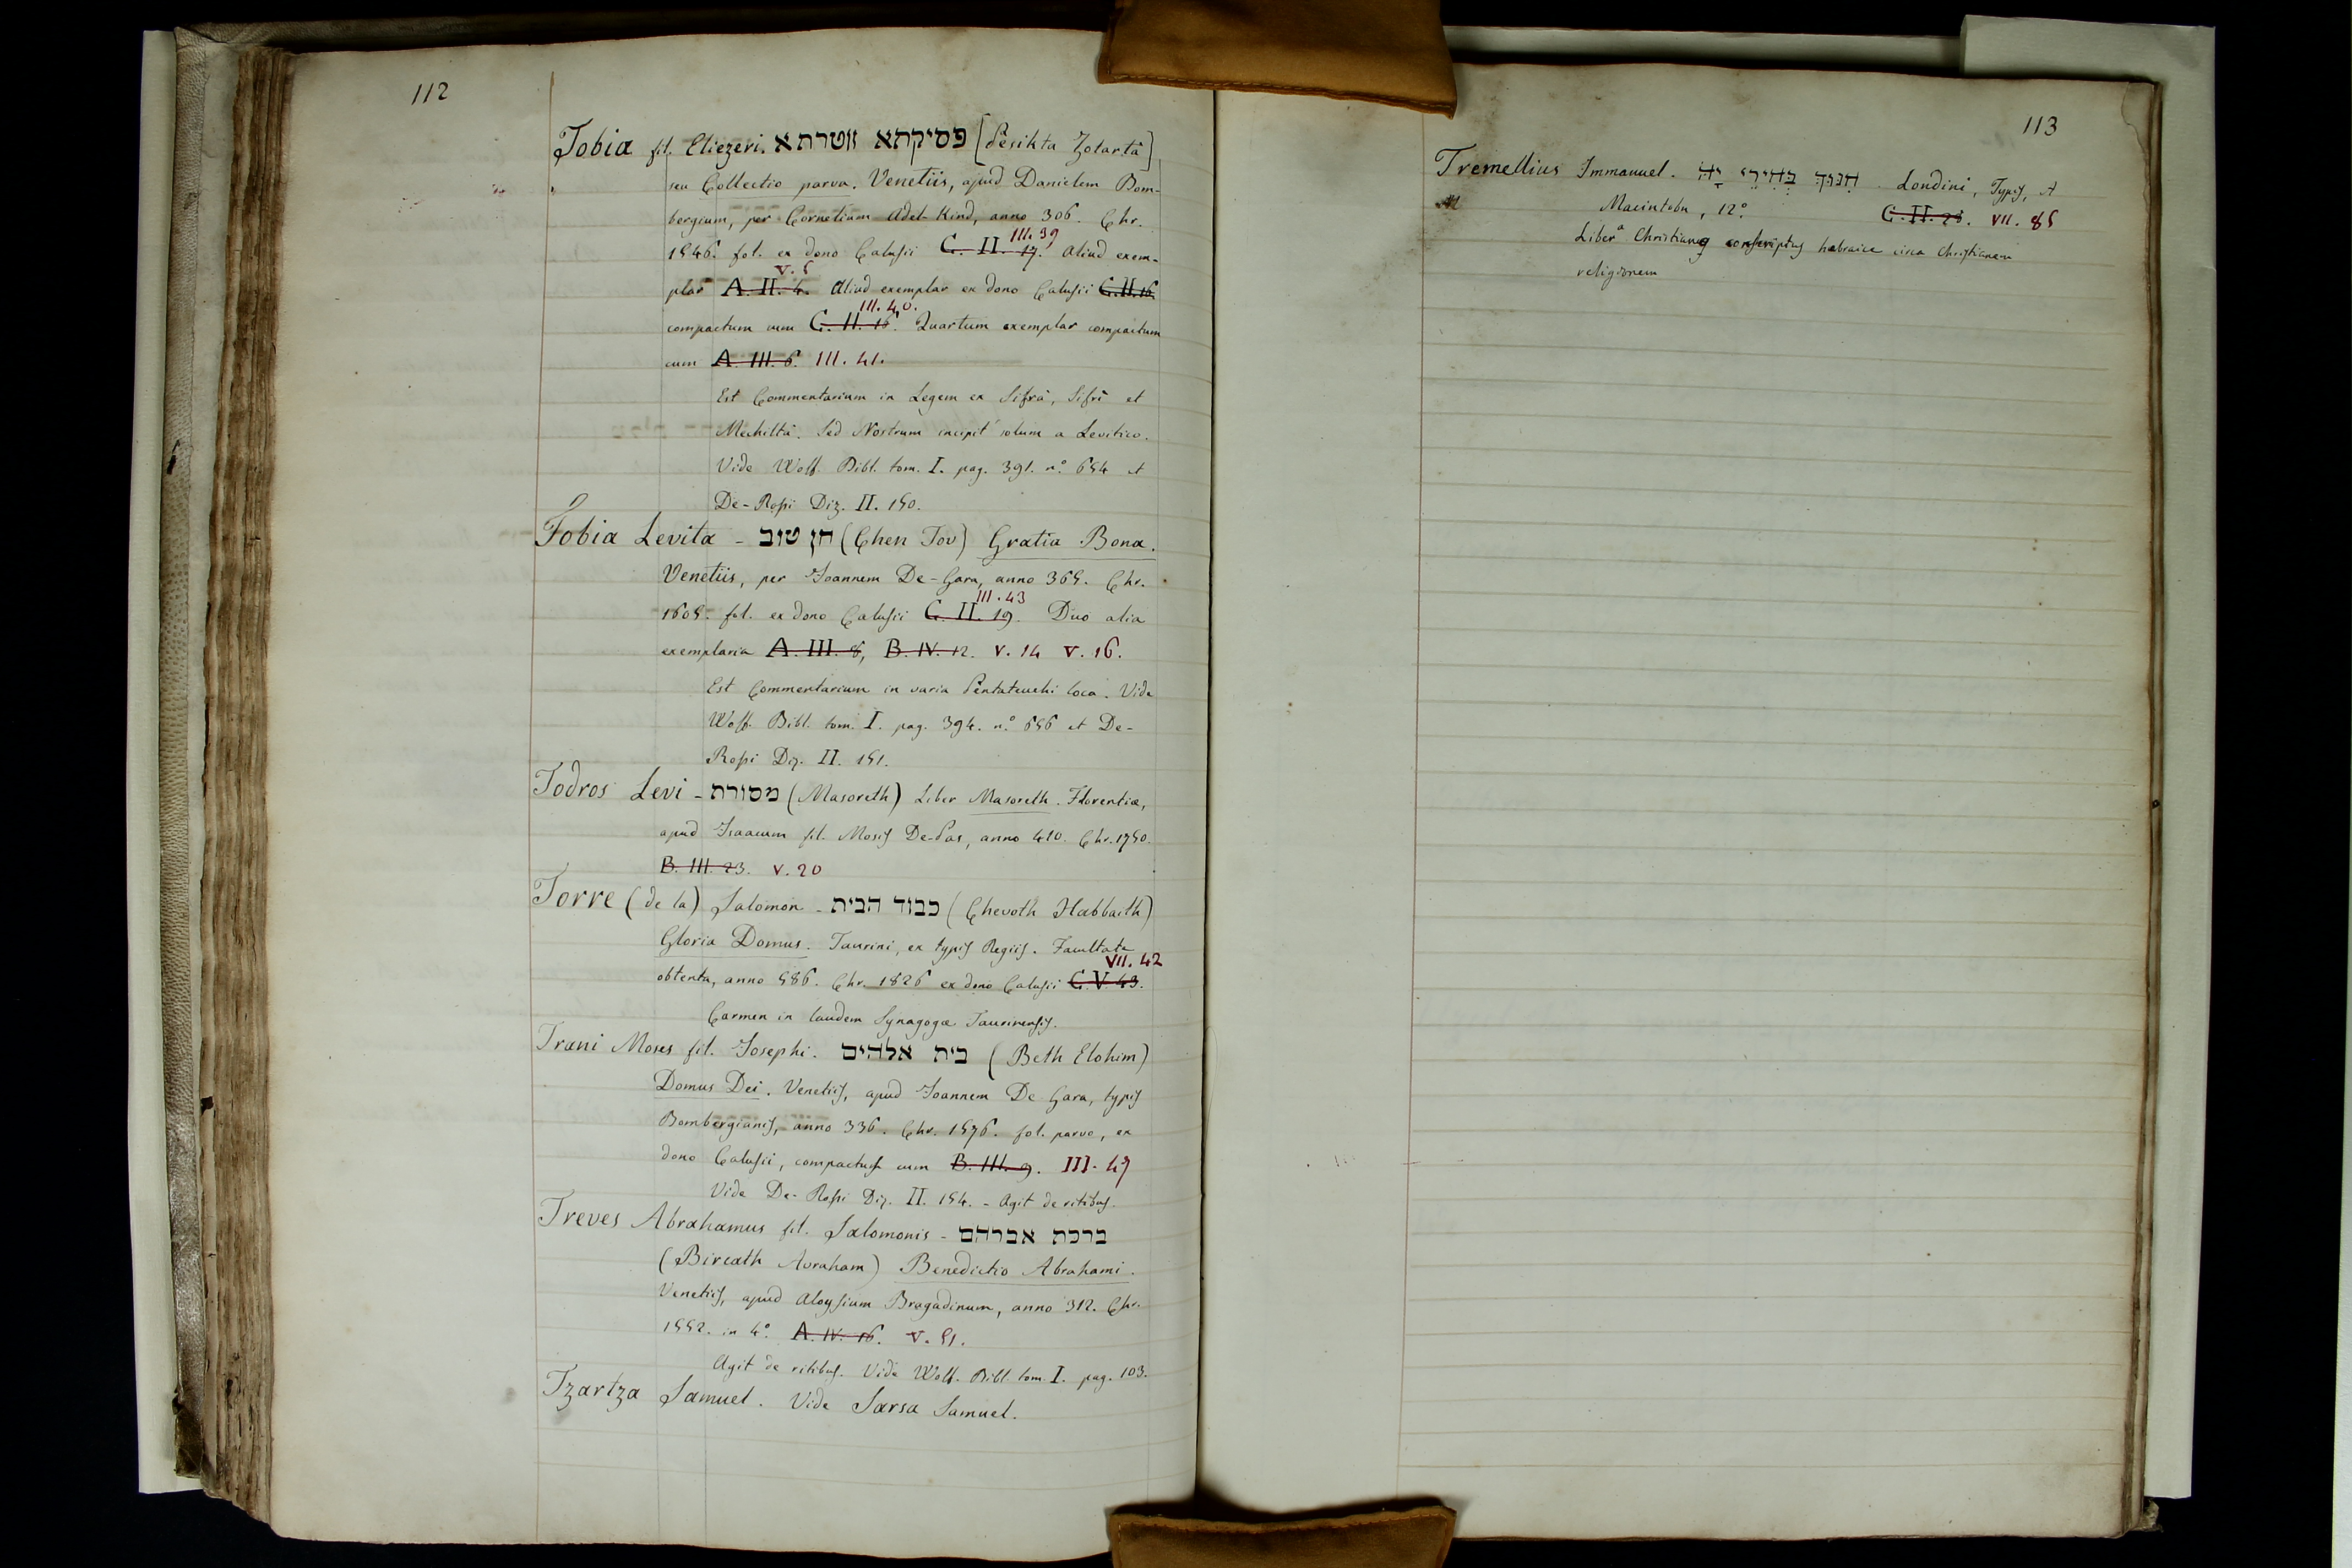 112
Tobia fil. Eliezeri. פסיקתא זוטרתא [Pesikta Zotartâ]
seu Collectio parva. Venetiis, apud Danielem Bom-
bergium, per Cornelium Adel Kind, anno 306. Chr.
III. 39
1546. fol. ex dono Calusii C. II. 17. Aliud exem-
V. 5
plar A. II. 4. Aliud exemplar ex dono Calusii C. II. 16.
III. 40.
compactum cum C. II. 16. Quartum exemplar compactum
cum A. III. 6. III. 41.
Est Commentarium in Legem ex Sifrâ, Sifrî et
Mechiltâ. Sed Nostrum incipit solum a Levitico.
Vide Wolf. Bibl. tom. I. pag. 391. n.° 654 et
De-Rossi Diz. II. 150.
Tobia Levita - חן טוב (Chen Tov) Gratia Bona.
Venetiis, per Joannem De-Gara, anno 365. Chr.
III. 43
1605. fol. ex dono Calusii C. II. 19. Duo alia
exemplaria A. III. 8, B. IV. 12. V. 14 V. 16.
Est Commentarium in varia Pentateuchi loca. Vide
Wolf. Bibl. tom. I. pag. 394. n.° 656 et De-
Rossi Diz. II. 151.
Todros Levi - מסורת (Masoreth) Liber Masoreth. Florentiæ,
apud Isaacum fil. Mosis De-Pas, anno 410. Chr. 1750.
B. III. 23. V. 20
Torre (de la) Salomon - כבוד הבית (Chevoth Habbaith)
Gloria Domus. Taurini, ex typis Regiis. Facultate
VII. 42
obtenta, anno 586. Chr. 1826 ex dono Calusii C. V. 43.
Carmen in laudem Synagogæ Taurinensis.
Trani Moses fil. Josephi. בית אלהים (Beth Elohim)
Domus Dei. Venetiis, apud Joannem De Gara, typis
Bombergianis, anno 336. Chr. 1576. fol. parvo, ex
dono Calusii, compactus cum B. III. 9. III. 47
Vide De-Rossi Diz. II. 154. - Agit de ritibus.
Treves Abrahamus fil. Salomonis - ברכת אברהם
(Bircath Avraham) Benedictio Abrahami.
Venetiis, apud Aloysium Bragadinum, anno 312. Chr.
1552. in 4° A. IV. 16. V. 51.
Agit de ritibus. Vide Wolf. Bibl. tom. I. pag. 103.
Tzartza Samuel. Vide Sarsa Samuel.
113
Tremellius Immanuel. חִנּוּךְ בְּחִירֵי יָהּ. Londini, Typis, A
Macintosh, 12° C. II. 28. VII. 85
Liber a Christiano conscriptus hebraice circa Christianam
religionem